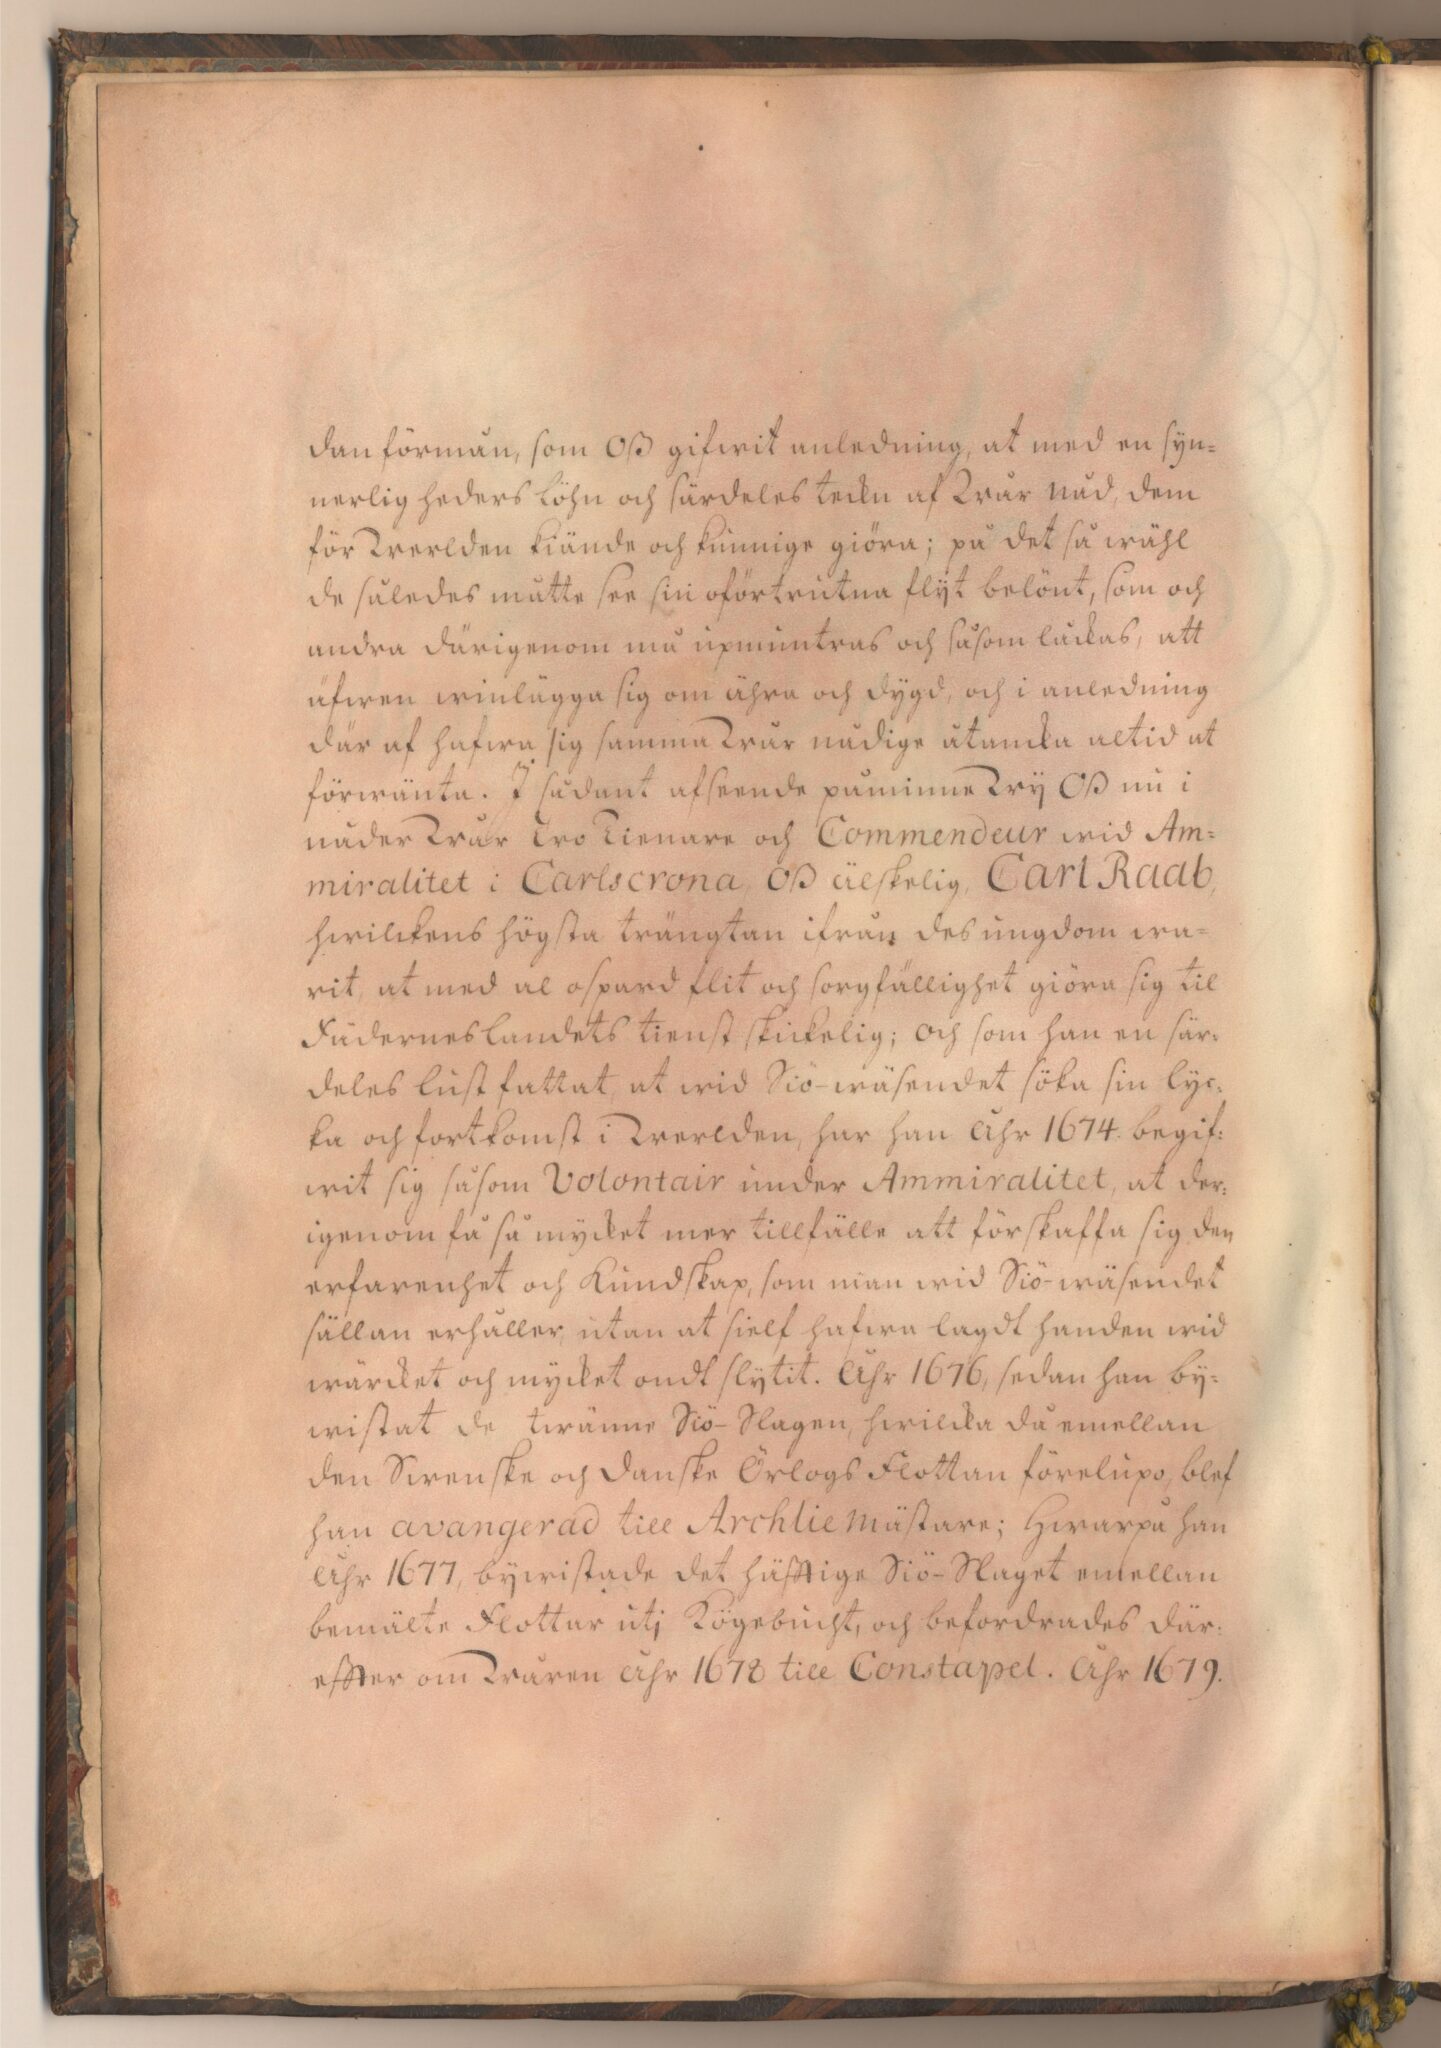 dan förmån, som Oß gifwit anledning, at med en syn=
nerlig heders löhn och särdeles tekn af Wår Nåd, dem
för Werlden kiände och kunnige giöra; på det så wähl
de således måtte see sin oförtrutna flijt belönt, som och
andra därigenom må upmuntras och såsom låckas, att
äfwen winlägga sig om ähra och dygd, och i anledning
där af hafwa sig samma Wår nådige åtancka altid at
förwänta. I sådant afseende påminne Wij Oß nu i
nåder Wår Tro Tienare och Commendeur wid Am=
miralitet i Carlscrona, Oß älskelig, Carl Raab,
hwilckens högsta trängtan ifrån des ungdom wa=
rit, at med al ospard flit och sorgfällighet giöra sig til
Fäderneslandets tienst skickelig; och som han en sär=
deles lust fattat, at wid Siö-wäsendet söka sin lyc=
ka och fortkomst i Werlden, har han Åhr 1674. begif=
wit sig såsom Volontair under Ammiralitet, at der=
igenom få så mycket mer tillfälle att förskaffa sig den
erfarenhet och Kundskap, som man wid Siö-wäsendet
sällan erhåller, utan at sielf hafwa lagdt handen wid
wärcket och mycket ondt slytit. Åhr 1676, sedan han by=
wistat de twänne Siö-Slagen, hwilcka då emellan
den Swenske och Danske Örlogs Flottan förelupo, blef
han avangerad till Archlie Mästare; Hwarpå han
Åhr 1677, bywistade det häfftige Siö-Slaget emellan
bemälte Flottar utj Kögebucht, och befordrades där=
effter om Wåren Åhr 1678 till Constapel. Åhr 1679.